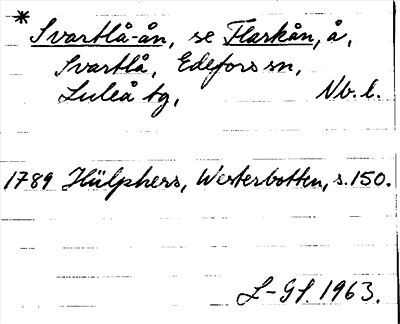 * Svartlå-ån, se Flarkån, å,
Svartlå, Edefors sn,
Luleå tg, Nb. l.
1789 Hülphers, Westerbotten, s. 150.
L-Gf. 1963.